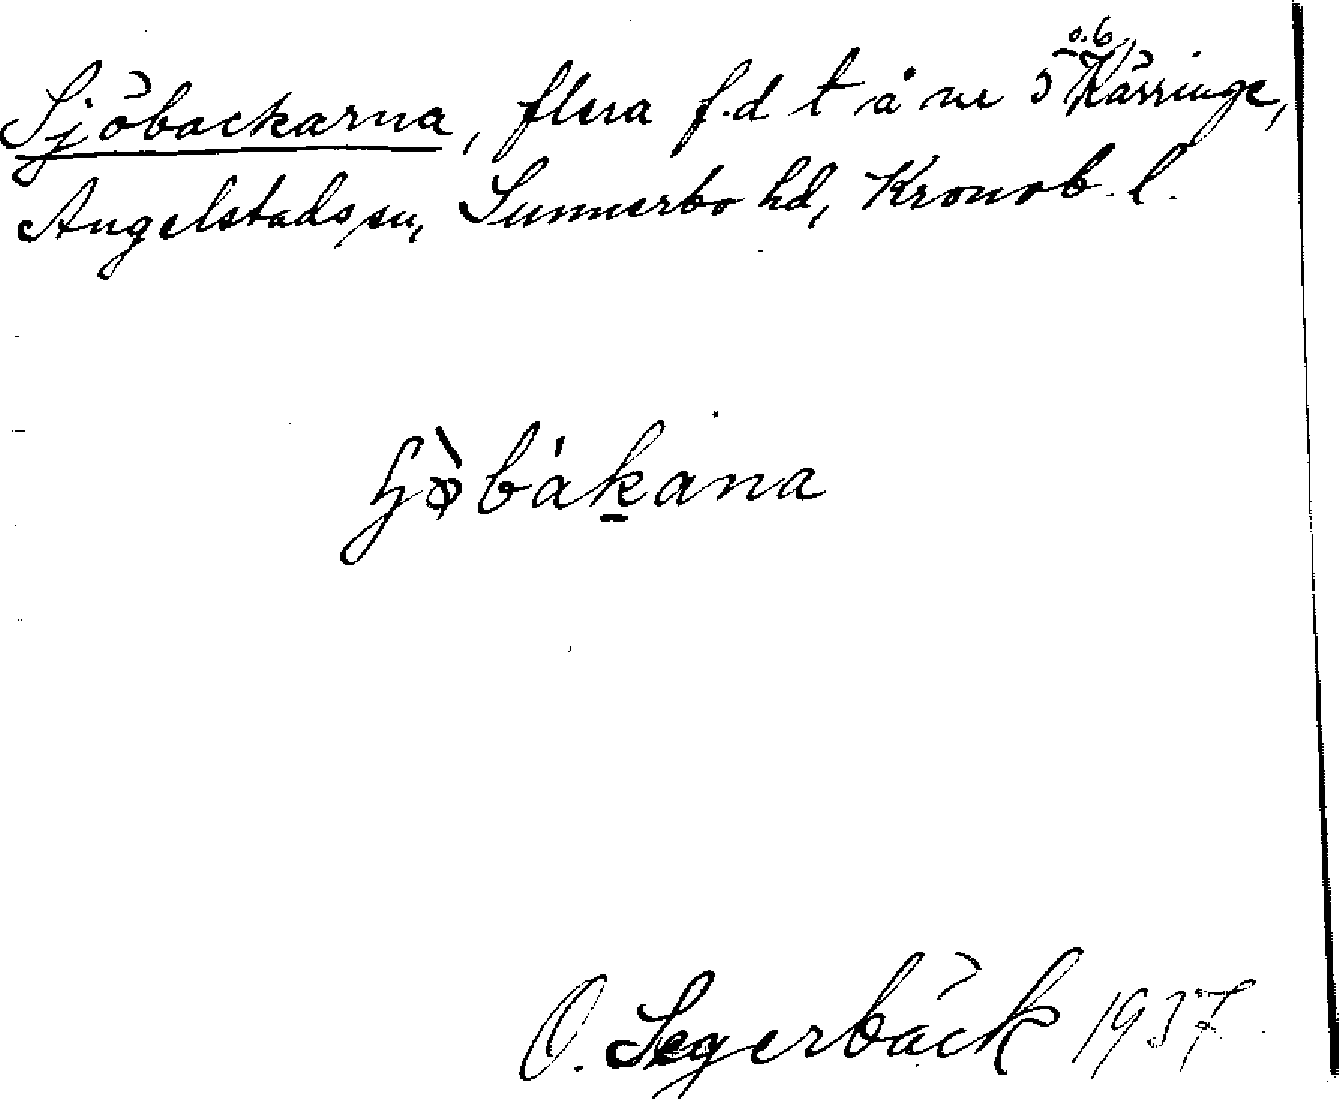 Sjöbackarna, flera f.d t å ne o.6 Kärringe,
Angelstads sn, Sunnerbo hd, Kronob. l.
bákana
O. Segerbäck 1937